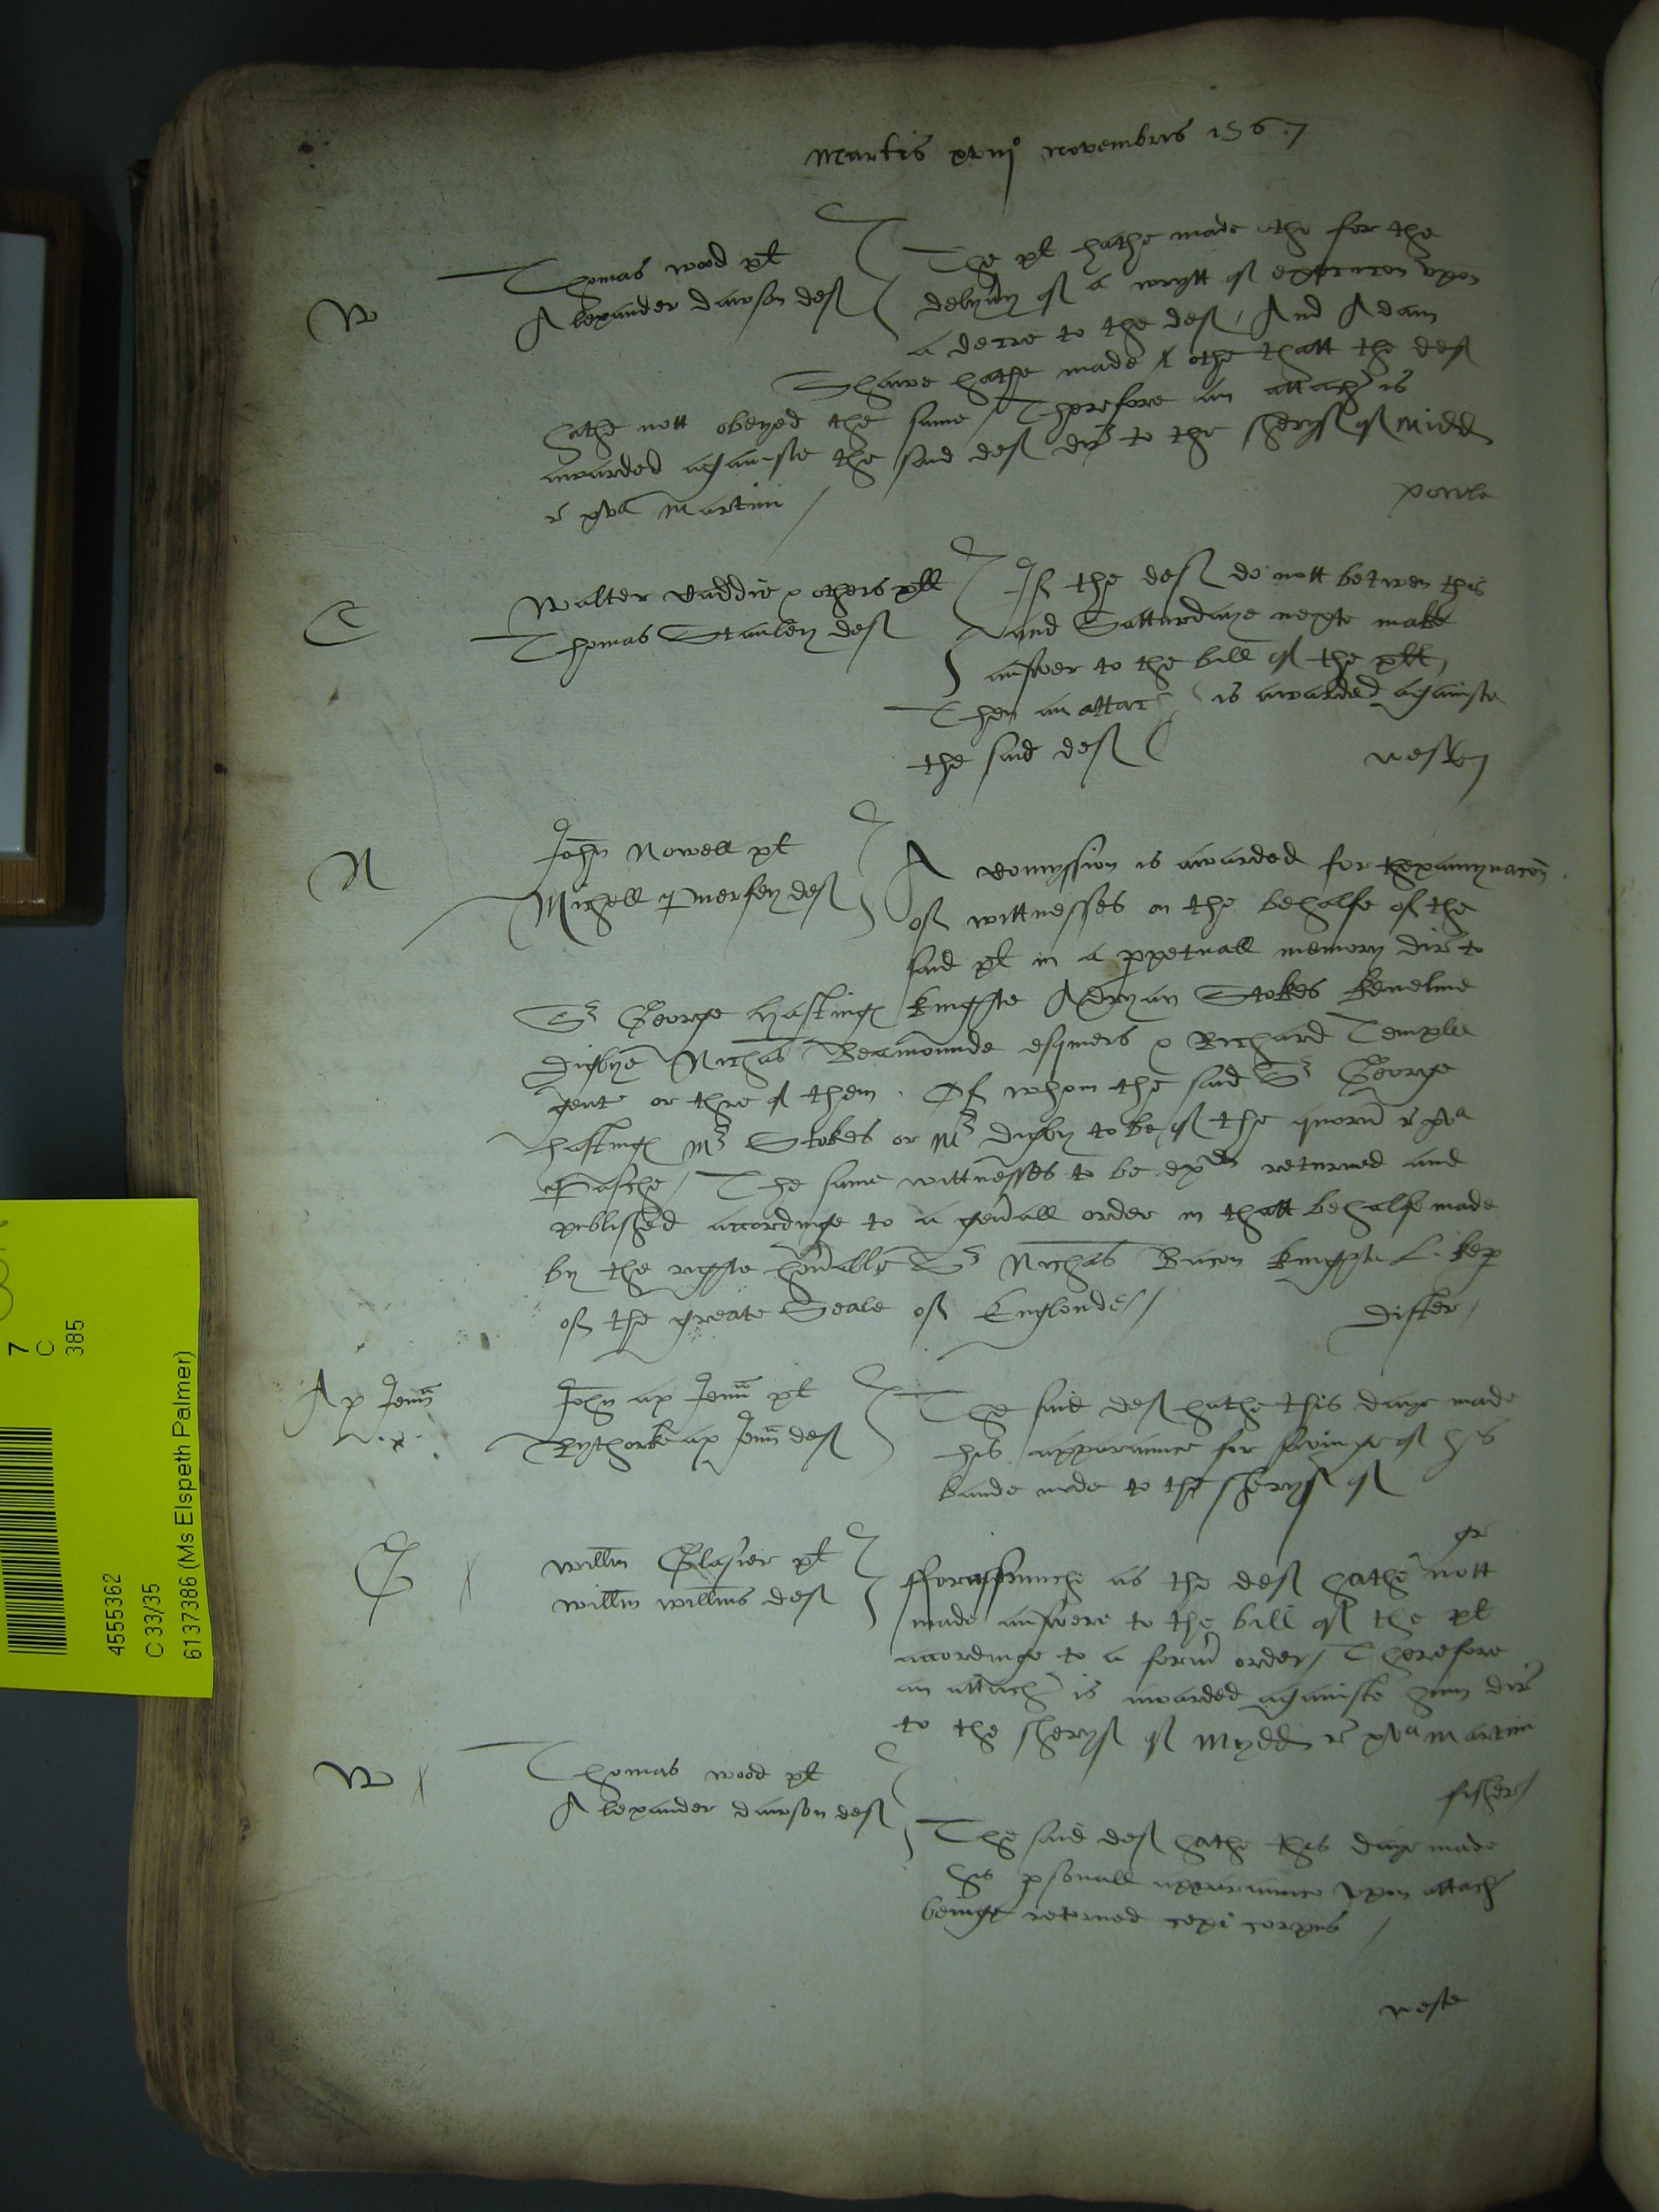 Martis xviij° Novembris 1567
W
Thomas Wood pl
Alexander Dawson def
The pl hathe made othe for the
delyv͛y of a wrytt of execucon upon
a decre to the def, And Adam
Shawe hathe made othe thatt the def
hathe nott obeyed the same / Therefore an attach is
awarded againste the said def dir to the Sheryf of Midd
r xva Martini /
Powle
C
Walter Caddie & others pll
Thomas Stanley def
If the def do nott betwen this
and Satturdaye nexte make
answer to the bill of the pll,
Then an attach is awarded againste
the said def
N
John Nowell pl
Michell def
A Comyssion is awarded for thexamynacon
of wittnesses on the behalfe of the
said pl in a ppetuall memory dir to
Sr George Hastings knighte Adryan Stokes Kenelme
Digbye Nichas Beamounde esquiers & Richard Temple
gent or thre of them. Of whom the said Sr George
Hastings Mr Stokes or Mr Digby to be of the quorū r xva
Pasche / The same wittnesses to be exd returned and
published accordinge to a gen͛all order in thatt behalfe made
by the righte hon͛able Sr Nichas Bacon knighte L. kep
of the greate Seale of Englonde //
Ap Jeuñ
John ap Jeuñ pl
ap Jeuñ def
The said def hathe this daye made
his apparaunce for savinge of his
bande made to the Sheryf of
G
Willm Glasier pl
Willm Willms def
Forasmuche as the def hathe nott
made answere to the bill of the pl
accordinge to a form͛ order / Therefore
an attach is awarded againste him dir
to the Sheryf of Mydd r xva Martini
fisher /
W
Thomas Wood pl
Alexander Dawson def
The said def hathe this daye made
his psonall apparaunce upon attach
beinge retorned cepi corpus /
weste
7
C
385
4555362
C 33/35
6137386 (Ms Elspeth Palmer)